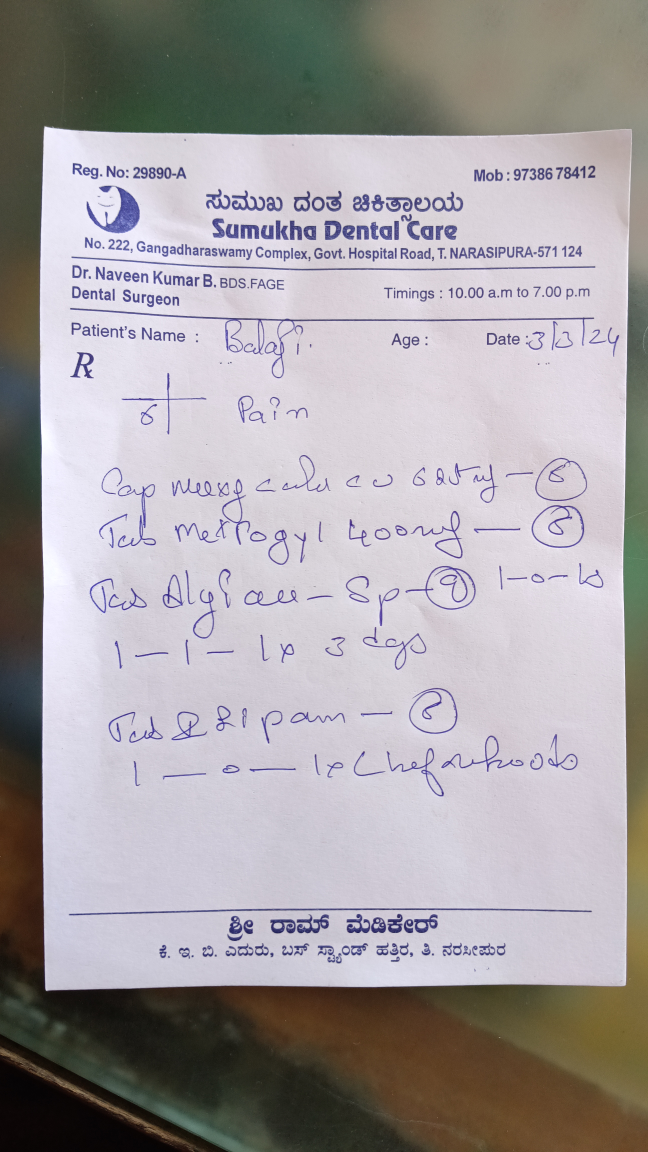 Reg. No: 29890-A
Mob : 97386 78412
ಸುಮುಖ ದಂತ ಚಿಕಿತ್ಸಾಲಯ
Sumukha Dental Care
No. 222, Gangadharaswamy Complex, Govt. Hospital Road, T. NARASIPURA-571 124
Dr. Naveen Kumar B. BDS.FAGE
Dental Surgeon
Timings : 10.00 a.m to 7.00 p.m
Patient's Name : Balaji.
Age :
Date : 3/3/24
Rx
6 Pain
Cap 625 mg -
Tab Metrogyl 400mg -
Tab - Sp - 9 1-0-1
1-1-1 x 3 days
Tab
1-0-1 x
ಶ್ರೀ ರಾಮ್ ಮೆಡಿಕೇರ್
ಕೆ. ಇ. ಬಿ. ಎದುರು, ಬಸ್ ಸ್ಟ್ಯಾಂಡ್ ಹತ್ತಿರ, ತಿ. ನರಸೀಪುರ